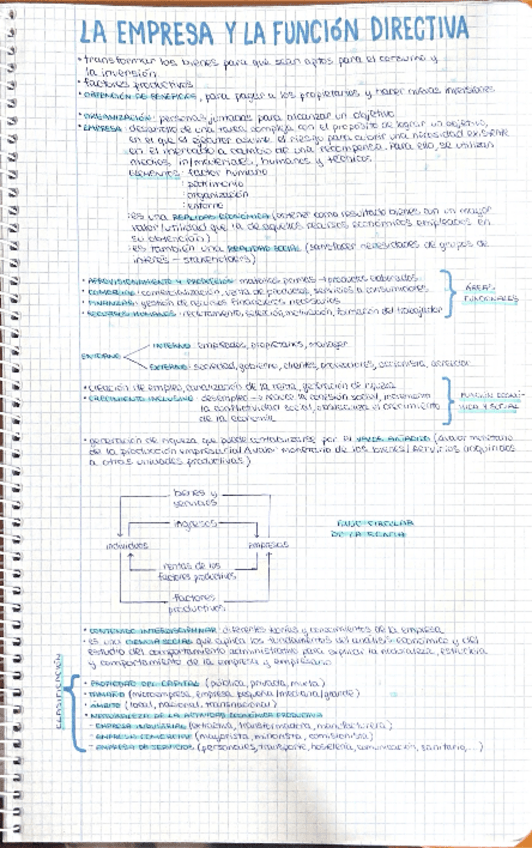 LA EMPRESA Y LA FUNCIÓN DIRECTIVA
• transformar los bienes para que sean aptos para el consumo y
la inversión
• factores productivos
• OBTENCIÓN DE BENEFICIOS, para pagar a los propietarios y hacer nuevas inversiones
• ORGANIZACIÓN: personas juntadas para alcanzar un objetivo
• EMPRESA: desarrollo de una tarea compleja con el propósito de lograr un objetivo,
en el que el ejecutor asume el riesgo para cubrir una necesidad existente
en el mercado a cambio de una recompensa. Para ello, se utilizan
medios in/materiales, humanos y técnicos
ELEMENTOS: factor humano
: patrimonio
: organización
: entorno
: es una REALIDAD ECONÓMICA (obtener como resultado bienes con un mayor
valor/utilidad que la de aquellos recursos económicos empleados en
su obtención)
: es también una REALIDAD SOCIAL (satisfacer necesidades de grupos de
interés - stakeholders)
• APROVISIONAMIENTO Y PRODUCCIÓN: materias primas → productos elaborados
• COMERCIAL: comercialización, venta de productos, servicios a consumidores
• FINANZAS: gestión de recursos financieros necesarios
• RECURSOS HUMANOS: reclutamiento, selección, motivación, formación del trabajador
ÁREAS
FUNCIONALES
ENTORNO
INTERNO: empleados, propietarios, manager
EXTERNO: sociedad, gobierno, clientes, proveedores, accionista, acreedor
• creación de empleo, canalización de la renta, generación de riqueza
• CRECIMIENTO INCLUSIVO: desempleo → reduce la cohesión social, incrementa
la conflictividad social, obstaculiza el crecimiento
de la economía
FUNCIÓN ECONÓ-
MICA Y SOCIAL
• generación de riqueza que puede contabilizarse por el VALOR AÑADIDO (valor monetario
de la producción empresarial / valor monetario de los bienes / servicios adquiridos
a otras unidades productivas)
bienes y
servicios
ingresos
individuos
empresas
rentas de los
factores productivos
factores
productivos
FLUJO CIRCULAR
DE LA RENTA
• CONTENIDO INTERDISCIPLINAR: diferentes teorías y conocimientos de la empresa
• es una CIENCIA SOCIAL que aplica los fundamentos del análisis económico y del
estudio del comportamiento administrativo para explicar la naturaleza, estructura
y comportamiento de la empresa y empresario
CLASIFICACIÓN
• PROPIEDAD DEL CAPITAL (pública, privada, mixta)
• TAMAÑO (microempresa, empresa pequeña/mediana/grande)
• ÁMBITO (local, nacional, transnacional)
• NATURALEZA DE LA ACTIVIDAD ECONÓMICA PRODUCTIVA
- EMPRESA INDUSTRIAL (extractiva, transformadora, manufacturera)
- EMPRESA COMERCIAL (mayorista, minorista, comisionista)
- EMPRESA DE SERVICIOS (personales, transporte, hostelería, comunicación, sanitaria, ...)